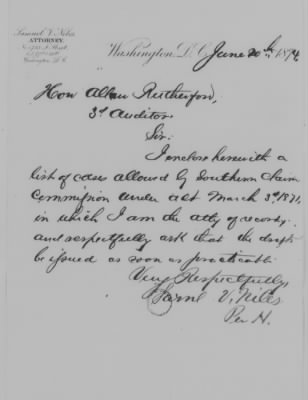 Samuel V. Niles
ATTORNEY.
Washington, D.C.
Washington, D.C. June 20th, 1874
Hon Allan Rutherford,
3d Auditor
Sir:
I enclose herewith a
list of cases allowed by Southern Claim
Commission under act March 3d 1871,
in which I am the atty of record,
and respectfully ask that the drafts
be issued as soon as practicable
Very Respectfully,
Saml V. Niles
Per H.